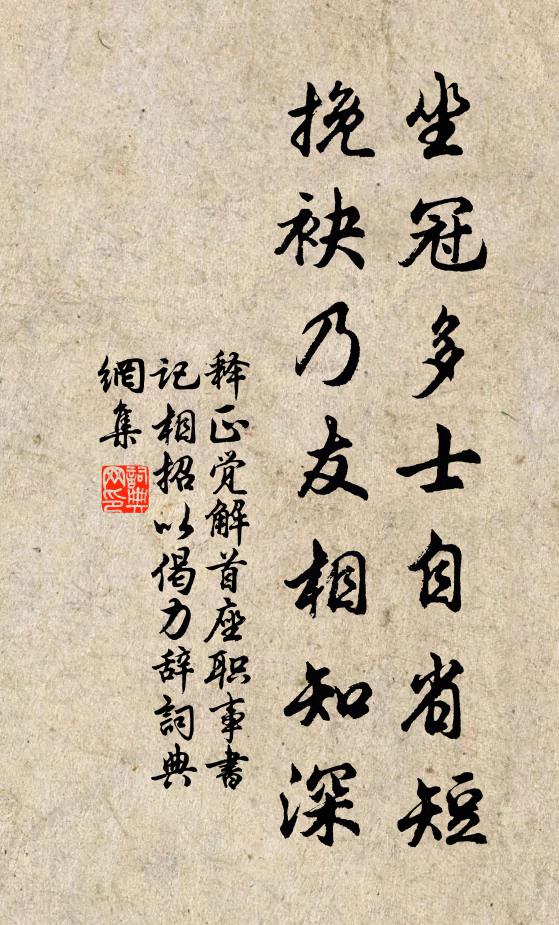 坐冠多士自省短
挽袂乃友相知深
释正觉解首座职事书
记相招以偈力辞詞典
網集
詞典
网印